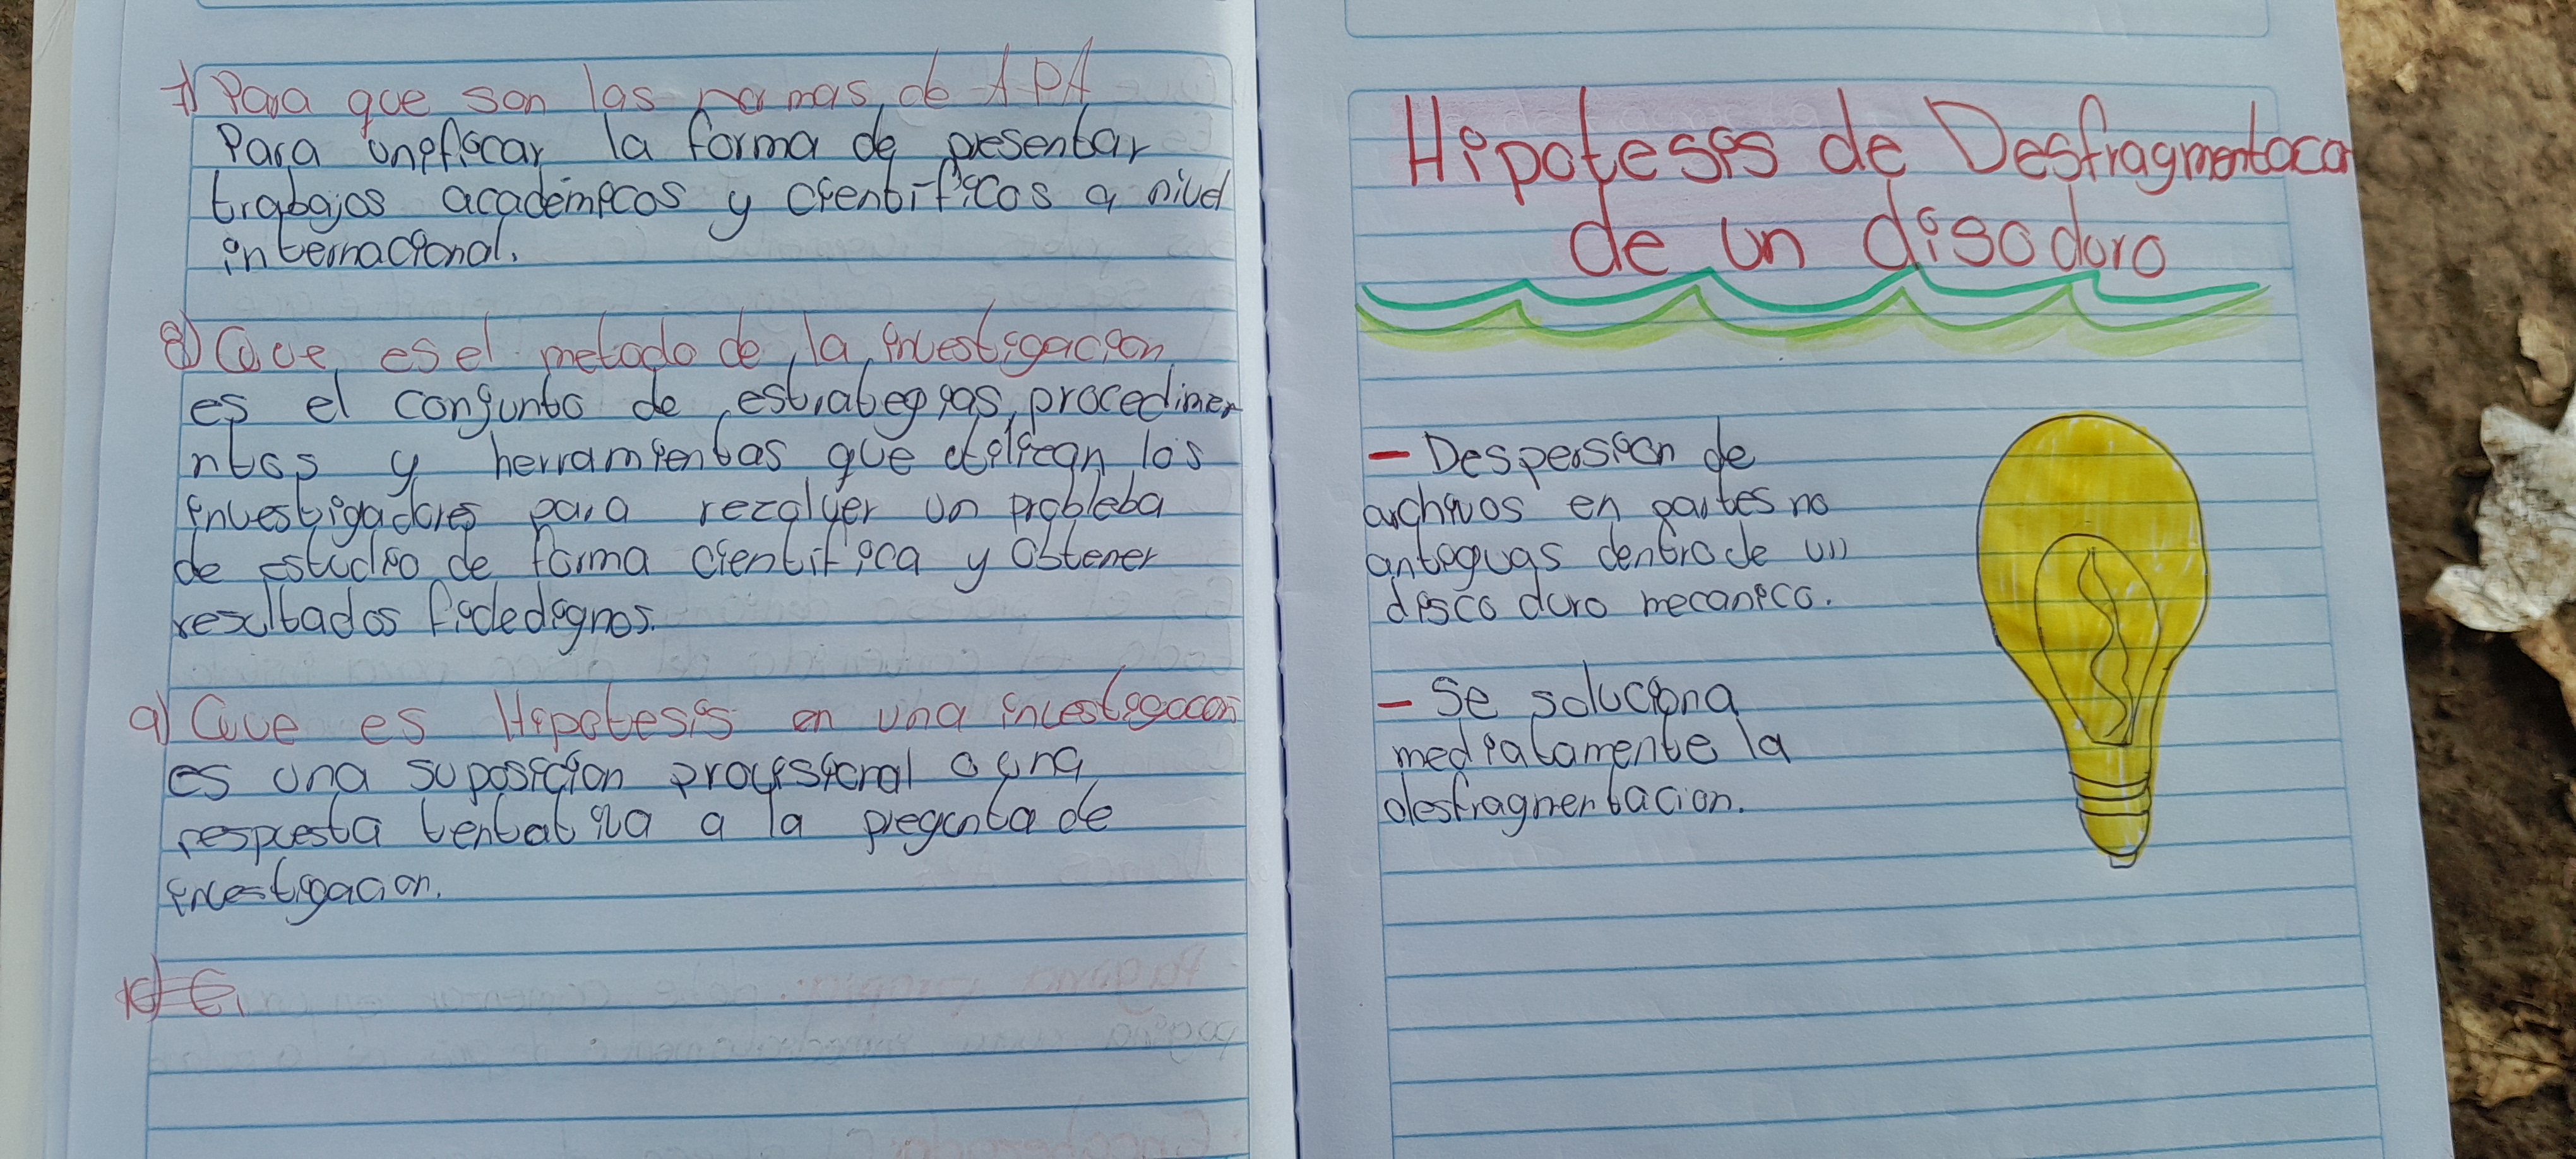 7) Para que son las normas de APA
Para unificar la forma de presentar
trabajos académicos y cientificos a nivel
internacional.
8) Que es el metodo de la investigacion
es el conjunto de estrategias, procedimie
ntos y herramientas que utilizan los
investigadores para rezolver un probleba
de estudio de forma cientifica y obtener
resultados fidedignos.
9) Que es Hipotesis en una investigacion
es una suposicion provisional o una
respuesta tentativa a la pregunta de
investigacion.
10)
Hipotesis de Desfragmentacion
de un diso duro
- Despersion de
archivos en partes no
antoguas dentro de un
disco duro mecanico.
- Se soluciona
mediatamente la
desfragmentacion.